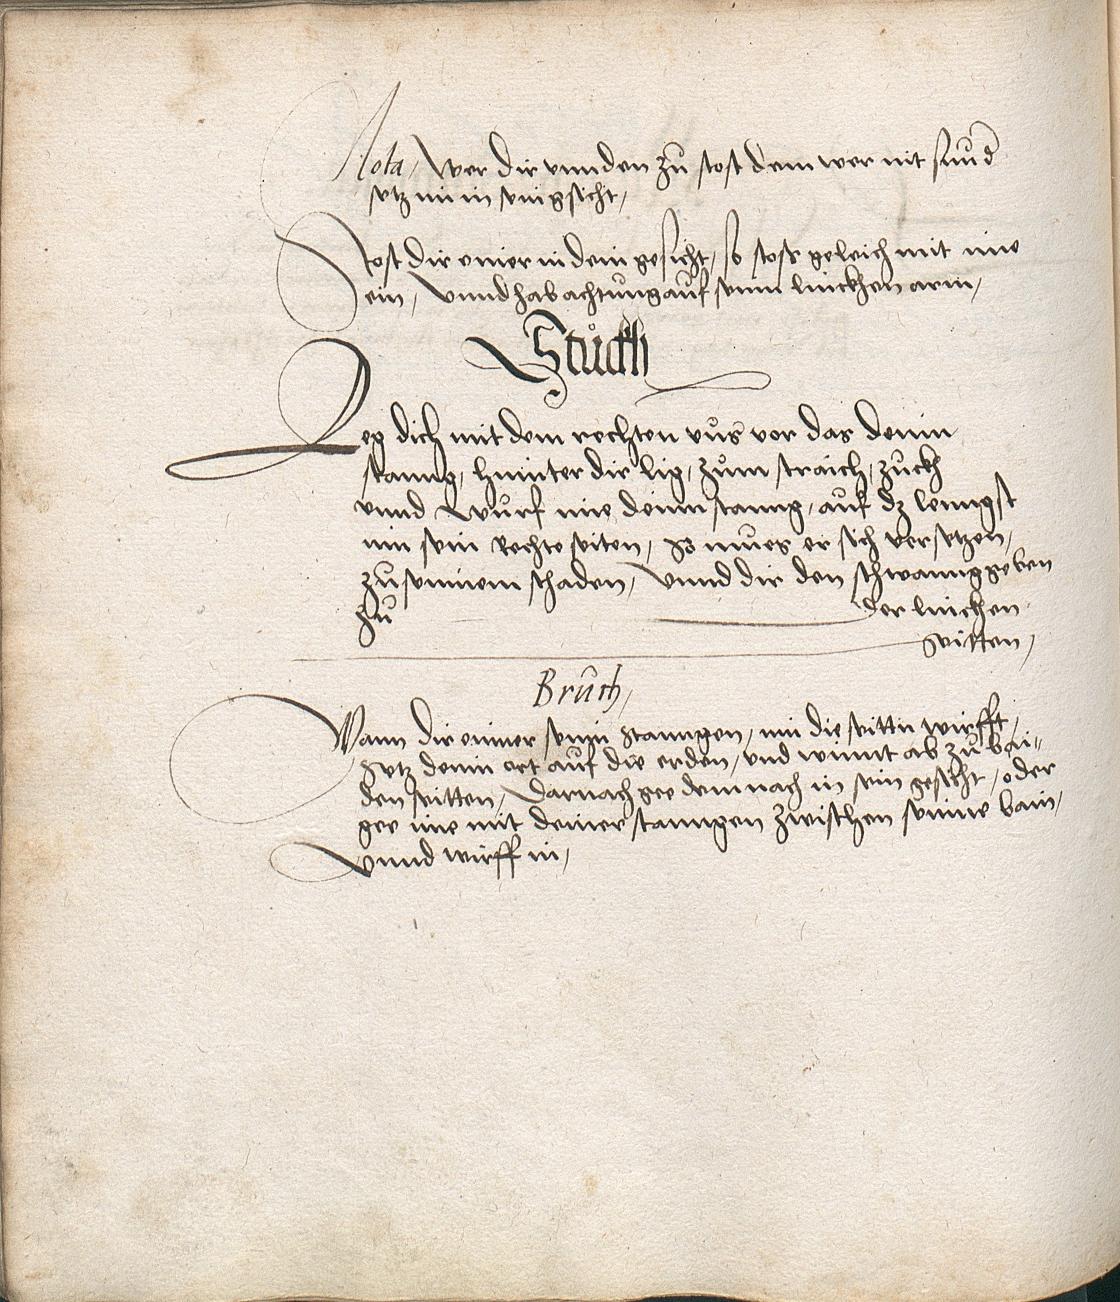 Nota, Wer dir vnnden zů stost dem wer nit sunnd
setz im in sein gsicht,
Stost dir einer in dein gesicht, so stoss geleich mit ime
ein, Vnnd hab achtung auf seinn linckhen arm,
Stůckh
Leg dich mit dem rechten vůs vor das deinn
stanng, hinnter dir lig, zům straich, zuckh
vnnd Würf ime deinn stanng, auf dz lenngst
inn sein Rechte seiten, So mues er sich versetzen,
zu seinnem schaden, Vnnd dir den schwanng geben
zů der linckhen
Seitten,
Brůch,
Wann dir einner seinn Stanngen, inn die seittn wirfft,
Setz deinn ort auf die erden, vnd winnt ab zů bai-
den seitten, Darnach gee dem nach in sein gesicht, oder
gee ime mit deiner stanngen zwischen seinne bain,
Vnnd wirff in,